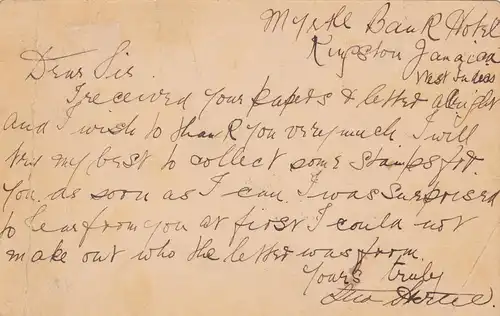 Myrtle Bank Hotel
Kingston Jamaica
West Indies
Dear Sir
I received your papers & letter alright
and I wish to thank you very much. I will
try my best to collect some stamps for
you as soon as I can. I was surprised
to hear from you at first I could not
make out who the letter was from.
Yours truly